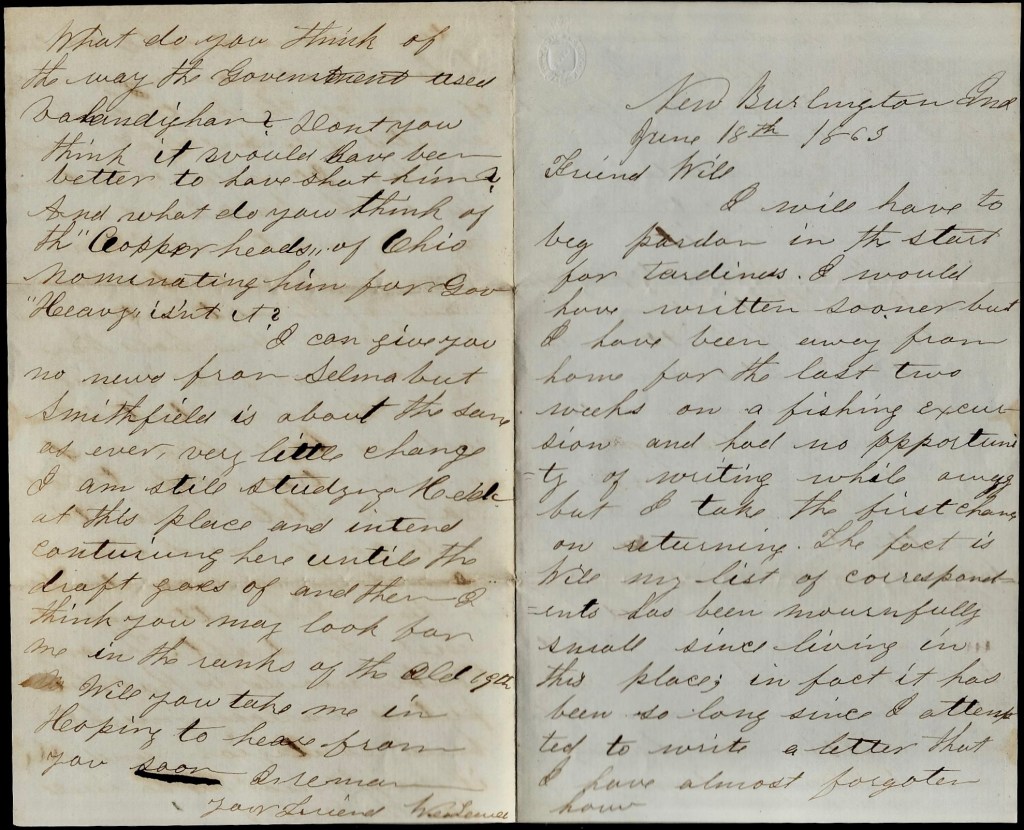 New Burlington Ind
June 18th 1863
Friend Will
I will have to
beg pardon in th start
for tardines. I would
have written sooner but
I have been away from
home for the last two
weeks on a fishing excur-
sion and had no opportuni
-ty of writing while away
but I take the first chanc
on returning. The fact is
Will my list of correspond-
-ents has been mournfully
small since living in
this place; in fact it has
been so long since I attemp
ted to write a letter that
I have almost forgoten
how
What do you think of
the way the Government used
Valandighan? Dont you
think it would have been
better to have shot him?
And what do you think of
th "Copper heads" of Ohio
Nominating him for Gov
"Heavy" isnt it?
I can give you
no news from Selma but
Smithfield is about the same
as ever, very little change
I am still studying
at this place and intend
continuing here untill the
draft goes of and then I
think you may look for
me in the ranks of the Old 19th
Will you take me in
Hoping to hear from
you soon I reman
your Friend